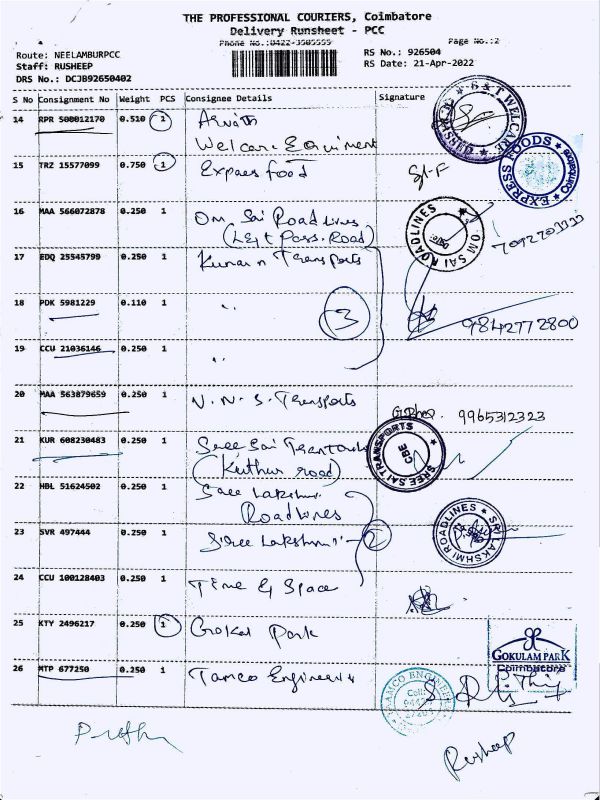 THE PROFESSIONAL COURIERS, Coimbatore
Delivery Runsheet - PCC
Phone No.:0422-3505555 Page No.:2
Route: NEELAMBURPCC RS No.: 926504
Staff: RUSHEEP RS Date: 21-Apr-2022
DRS No.: DCJB92650402
S No Consignment No Weight PCS Consignee Details Signature
14 RPR 500012170 0.510 1
15 TRZ 15577099 0.750 1 Express food
EXPRESS FOODS Coimbatore
16 MAA 566072878 0.250 1 Om Sai Roadlines
(L&T Pass. Road)
OM SAI ROADLINES
7092703333
17 EDQ 25545799 0.250 1 Kumaran Transports
18 PDK 5981229 0.110 1 " 3
9842772800
19 CCU 21036146 0.250 1 "
20 MAA 563879659 0.250 1 V. N. S. Transports
9965312323
21 KUR 608230483 0.250 1 Sree Sai
road)
SREE SAI TRANSPORTS CBE
22 HBL 51624502 0.250 1 Sree Lakshmi
Roadlines
23 SVR 497444 0.250 1 Sree Lakshmi " 2
SRI LAKSHMI ROADLINES
24 CCU 100128403 0.250 1 Time & Space
25 KTY 2496217 0.250 1 Gokul Park
GOKULAM PARK
Coimbatore
26 MTP 677250 0.250 1 Tamco Engineers
TAMCO ENGINEERS
Rusheep